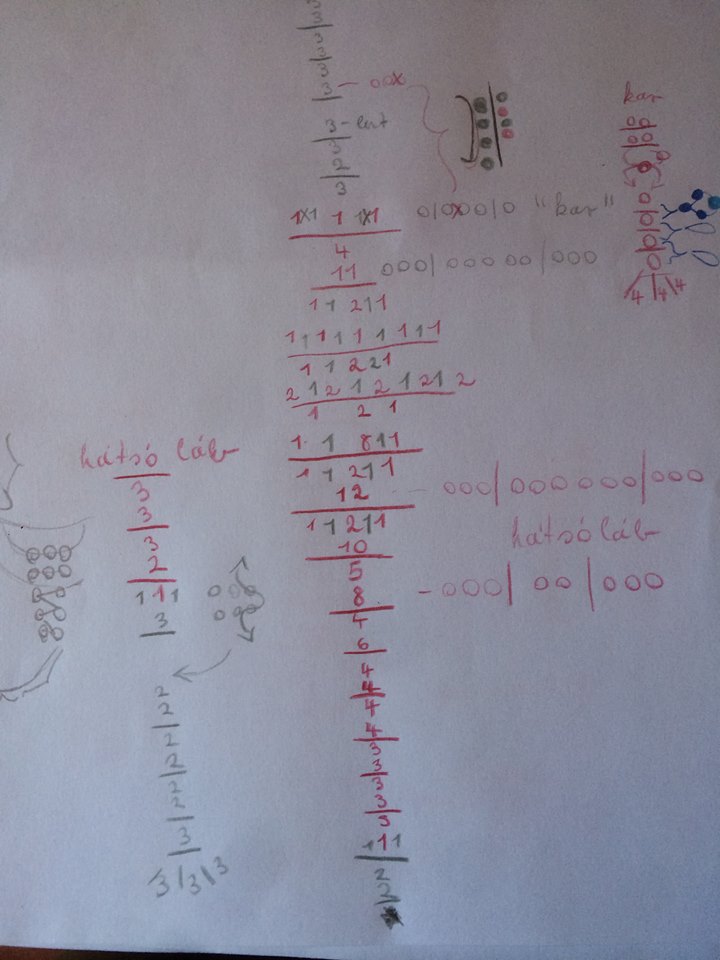 3 3
3 3
3
3 - oox
3 - lent
3
2
3
kar
1x1 1 1x1
o|oxoo|o "kar"
4
11
ooo|ooooo|ooo
1 1 2 1 1
4 4 4
1 1 1 1 1 1 1 1 1
1 1 2 2 1
2 1 2 1 2 1 2 1 2
1 2 1
1 1 8 1 1
1 1 2 1 1
12
- ooo|oooooo|ooo
1 1 2 1 1
10
hátsó láb
5
8
- ooo|oo|ooo
6
4
4
4
4
3
3
3
3
1 1 1
2
2
hátsó láb
3
3
3
2
1 1 1
3
2 2
2 2
2 2
3
3/3\3